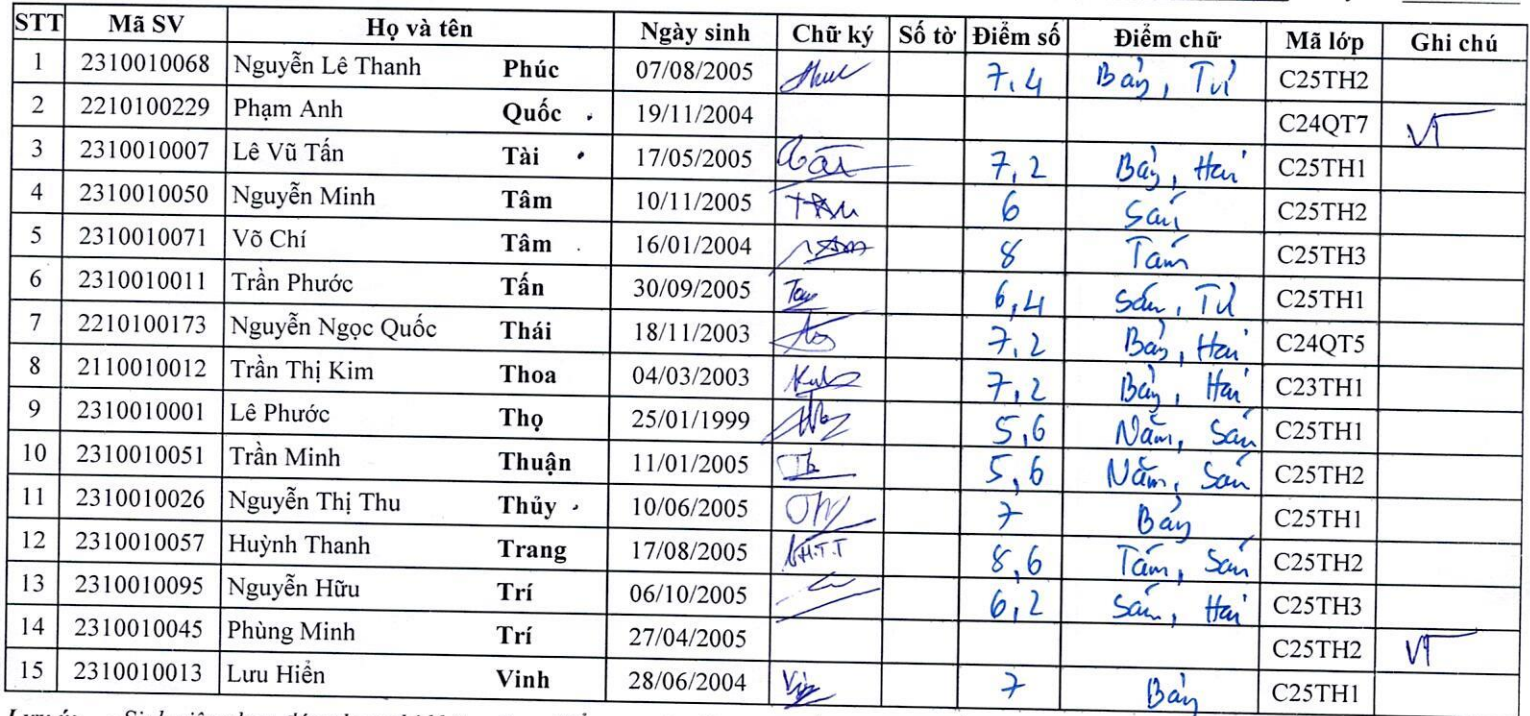 STT Mã SV Họ và tên Ngày sinh Chữ ký Số tờ Điểm số Điểm chữ Mã lớp Ghi chú
1 2310010068 Nguyễn Lê Thanh Phúc 07/08/2005 7,4 Bảy, Tư C25TH2
2 2210100229 Phạm Anh Quốc 19/11/2004 C24QT7 VT
3 2310010007 Lê Vũ Tấn Tài 17/05/2005 Tài 7,2 Bảy, Hai C25TH1
4 2310010050 Nguyễn Minh Tâm 10/11/2005 6 Sáu C25TH2
5 2310010071 Võ Chí Tâm 16/01/2004 8 Tám C25TH3
6 2310010011 Trần Phước Tấn 30/09/2005 6,4 Sáu, Tư C25TH1
7 2210100173 Nguyễn Ngọc Quốc Thái 18/11/2003 7,2 Bảy, Hai C24QT5
8 2110010012 Trần Thị Kim Thoa 04/03/2003 7,2 Bảy, Hai C23TH1
9 2310010001 Lê Phước Thọ 25/01/1999 5,6 Năm, Sáu C25TH1
10 2310010051 Trần Minh Thuận 11/01/2005 5,6 Năm, Sáu C25TH2
11 2310010026 Nguyễn Thị Thu Thủy 10/06/2005 7 Bảy C25TH1
12 2310010057 Huỳnh Thanh Trang 17/08/2005 H.T.T 8,6 Tám, Sáu C25TH2
13 2310010095 Nguyễn Hữu Trí 06/10/2005 6,2 Sáu, Hai C25TH3
14 2310010045 Phùng Minh Trí 27/04/2005 C25TH2 VT
15 2310010013 Lưu Hiển Vinh 28/06/2004 7 Bảy C25TH1